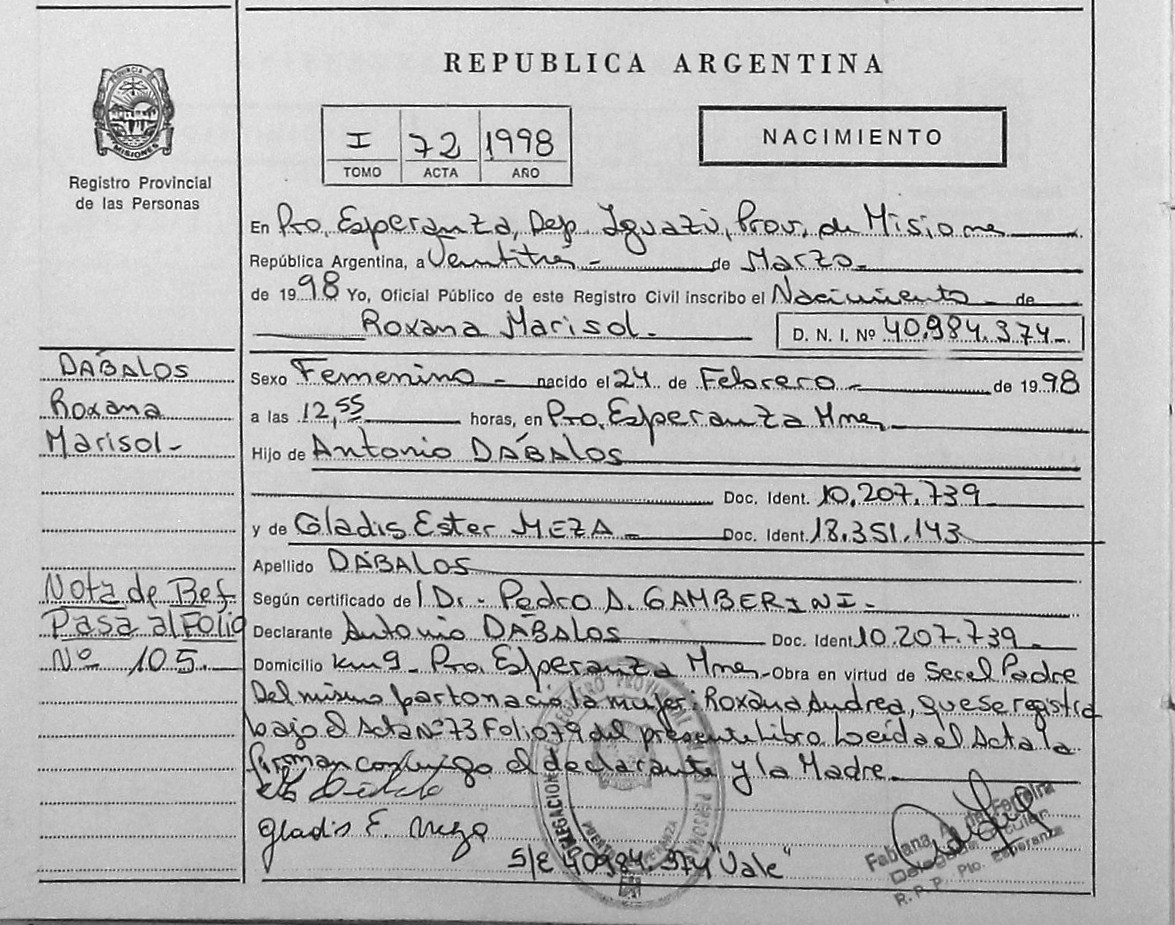 REPUBLICA ARGENTINA
PROVINCIA DE
MISIONES
Registro Provincial
de las Personas
I 72 1998
TOMO ACTA AÑO
NACIMIENTO
En Pto, Esperanza, Dep. Iguazú, Prov. de Misiones
República Argentina, a Ventitres - de Marzo -
de 1998 Yo, Oficial Público de este Registro Civil inscribo el Nacimiento - de
Roxana Marisol. D. N. I. Nº 40.984.374-
DÁBALOS
Roxana
Marisol-
Sexo Femenino - nacido el 24 de Febrero - de 1998
a las 12,55 horas, en Pto, Esperanza Mnes
Hijo de Antonio DÁBALOS
Doc. Ident. 10.207.739
y de Gladis Ester MEZA - Doc. Ident. 18.351.143
Apellido DÁBALOS
Nota de Ref.
Pasa al Folio
Nº 105.
Según certificado del Dr.- Pedro A. GAMBERINI-
Declarante Antonio DÁBALOS Doc. Ident. 10.207.739
Domicilio Km 9 - Pto. Esperanza Mnes - Obra en virtud de Ser el Padre
Del mismo parto nació la mujer: Roxana Andrea, que se registra
bajo el Acta Nº 73 Folio 79 del presente Libro Leída el Acta la
firman conmigo el declarante y la Madre
Gladis E. Meza
S/E 40984.374 "Vale"
DELEGACION REGISTRO PROVINCIAL DE LAS PERSONAS
PUERTO ESPERANZA
Fabiana A. de Ferreira
Delegada Titular
R. P. P. Pto. Esperanza